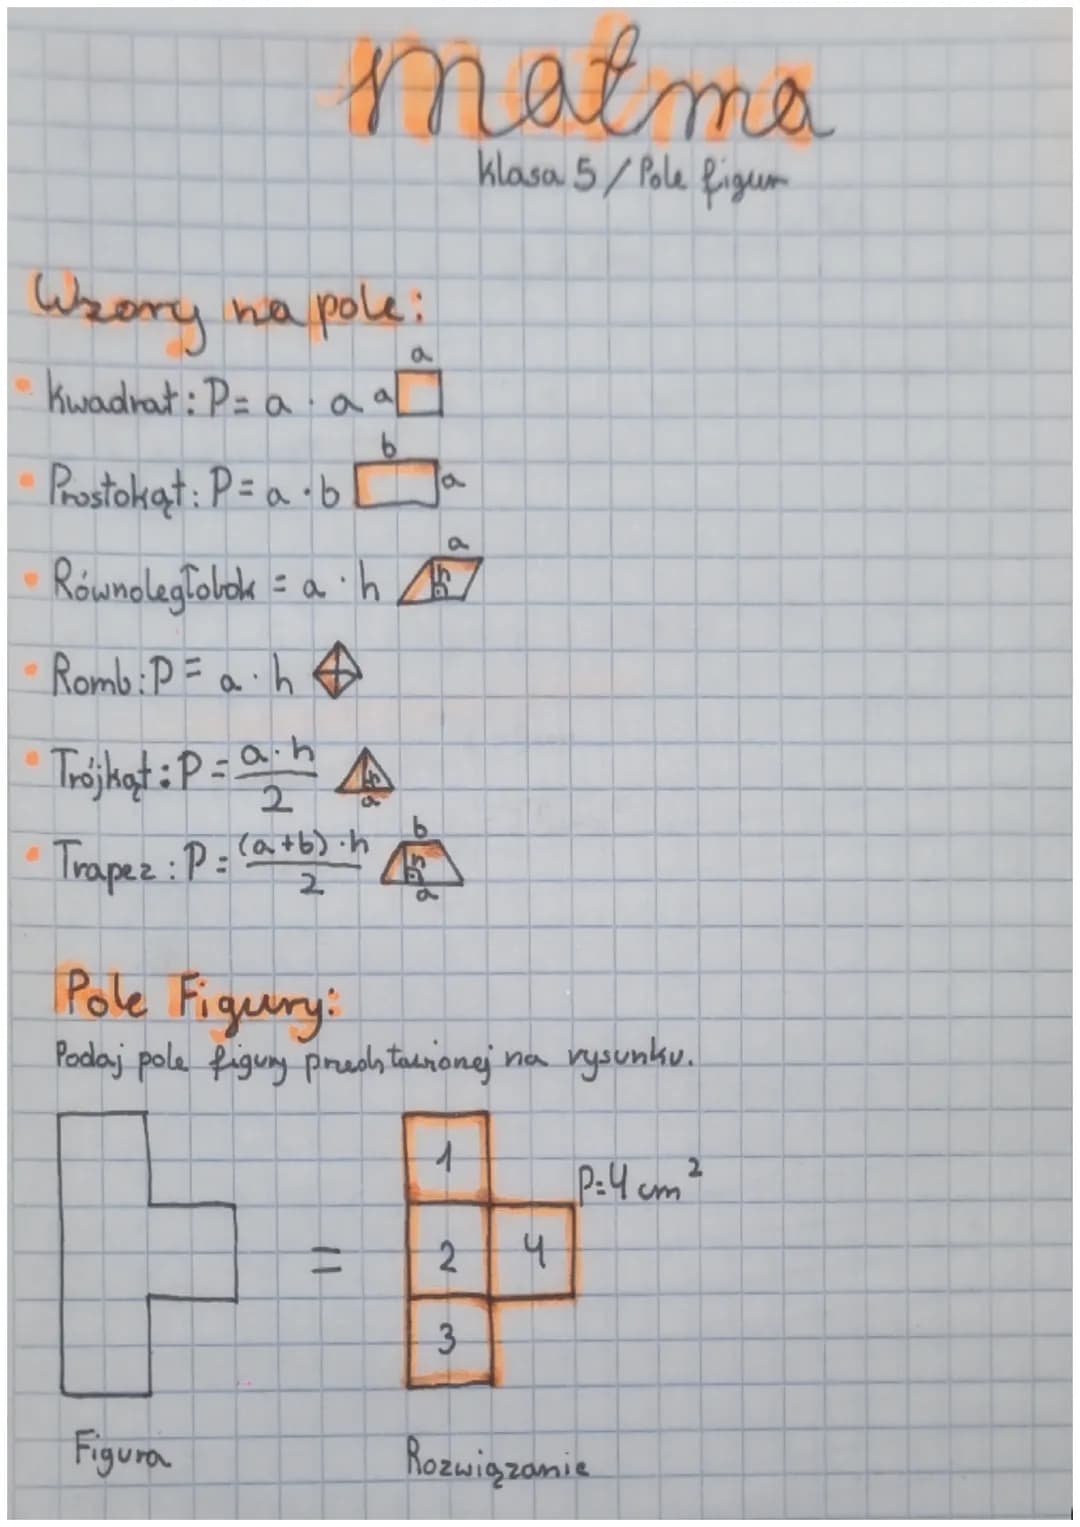 matma
klasa 5 / Pole figur
Wzory na pole:
a
• Kwadrat: P = a · a a
b
• Prostokąt: P = a · b a
a
• Równoległobok = a · h h
• Romb: P = a · h
• Trójkąt: P = a · h / 2 h
a
b
• Trapez: P = (a+b) · h / 2 h
a
Pole Figury:
Podaj pole figury przedstawionej na rysunku.
1
P=4 cm²
= 2 4
3
Figura Rozwiązanie